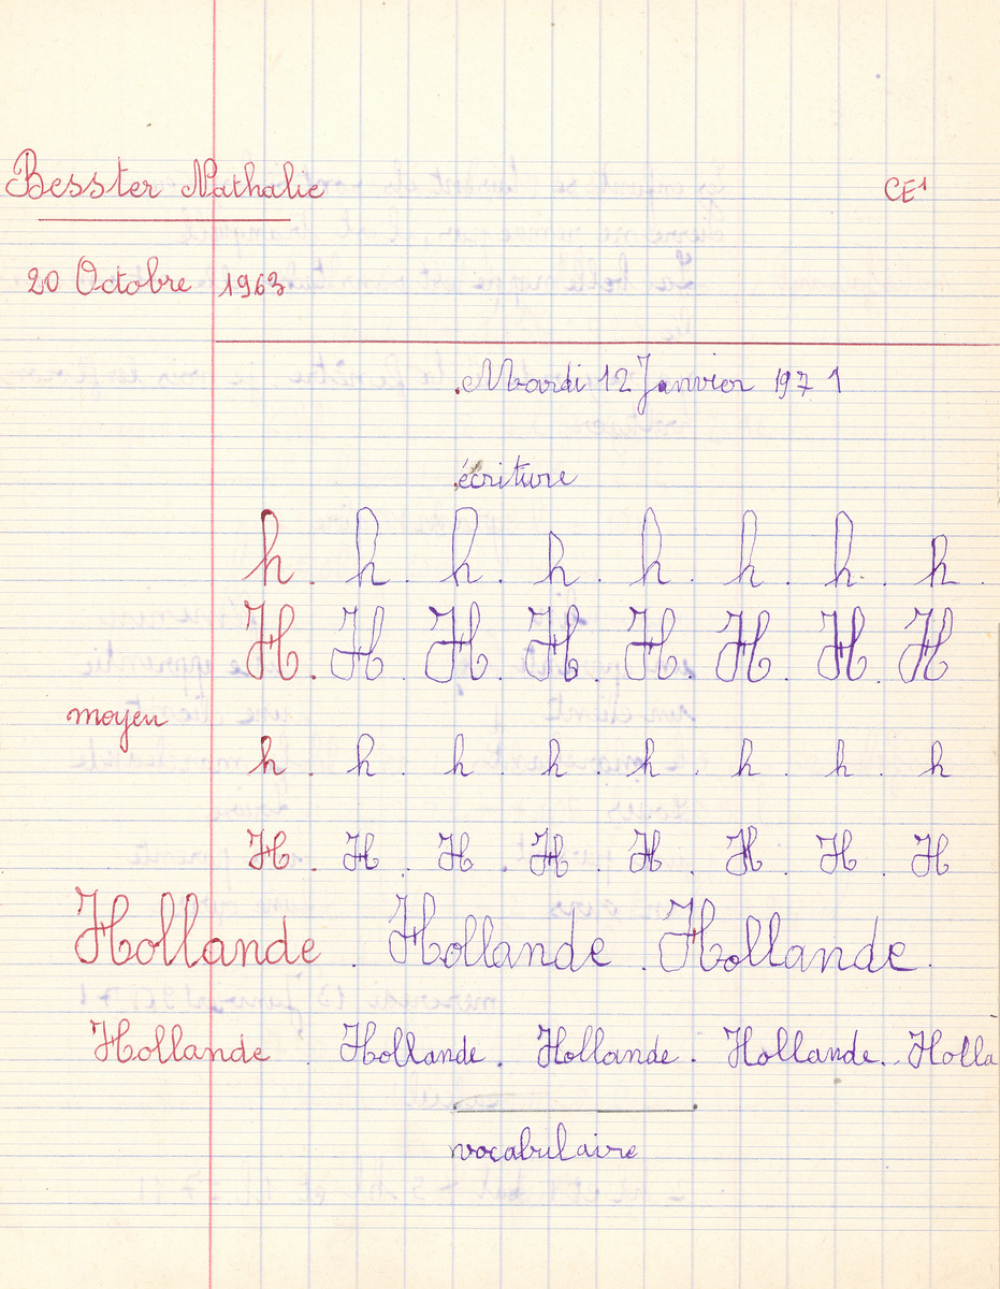 Besster Nathalie CE1
20 Octobre 1963
Mardi 12 Janvier 1971
écriture
h . h . h . h . h . h . h . h .
H . H . H . H . H . H . H . H
moyen
h . h . h . h . h . h . h . h
H . H . H . H . H . H . H . H
Hollande . Hollande . Hollande .
Hollande . Hollande . Hollande . Hollande . Holla
vocabulaire